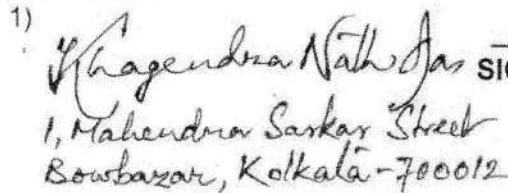 1)
Khagendra Nath Das SIG
1, Mahendra Sarkar Street
Bowbazar, Kolkata-700012